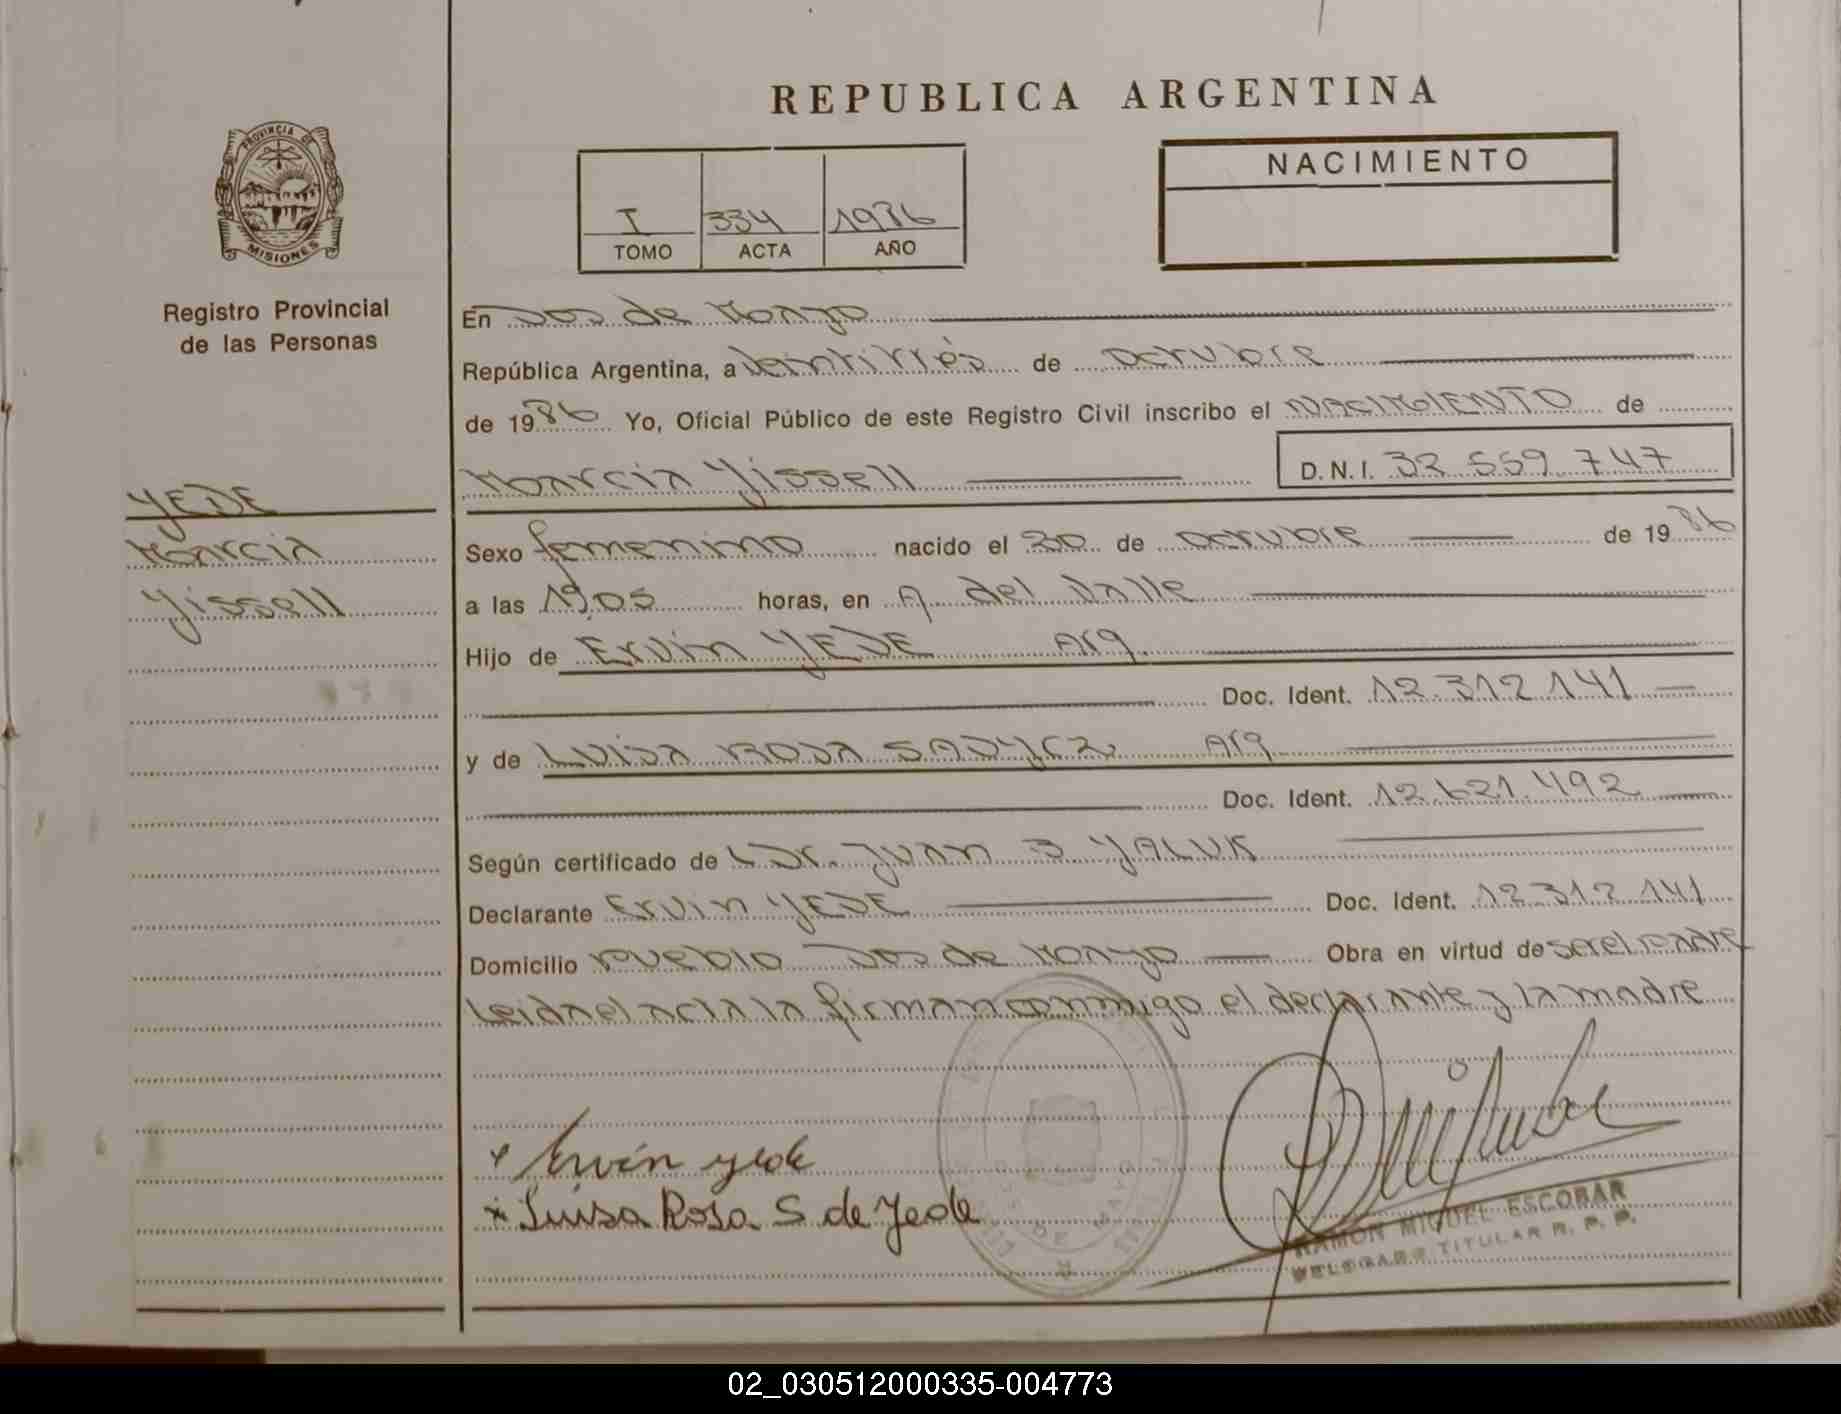 REPUBLICA ARGENTINA
PROVINCIA DE
MISIONES
Registro Provincial
de las Personas
I 334 1986
TOMO ACTA AÑO
NACIMIENTO
En Dos de Mayo
República Argentina, a Veintitrés de octubre
de 1986 Yo, Oficial Público de este Registro Civil inscribo el NACIMIENTO de
Marcia Yissell D.N.I. 32 559 747
YEDE
Marcia
Yissell
Sexo femenino nacido el 20 de octubre de 1986
a las 19,05 horas, en A. del Valle
Hijo de Ervin YEDE Arg.
Doc. Ident. 12.312.141
y de LUISA ROSA Arg
Doc. Ident. 12.621.492
Según certificado de Dr. JUAN B YALUK
Declarante Ervin YEDE Doc. Ident. 12.312.141
Domicilio Pueblo Dos de Mayo Obra en virtud de ser el padre
Leida el acta la firman conmigo el declarante y la madre
Ervin yede
Luisa Rosa S de Yede
RAMON MIGUEL ESCOBAR
DELEGADO TITULAR R. P. P.
DOS DE MAYO
02_030512000335-004773